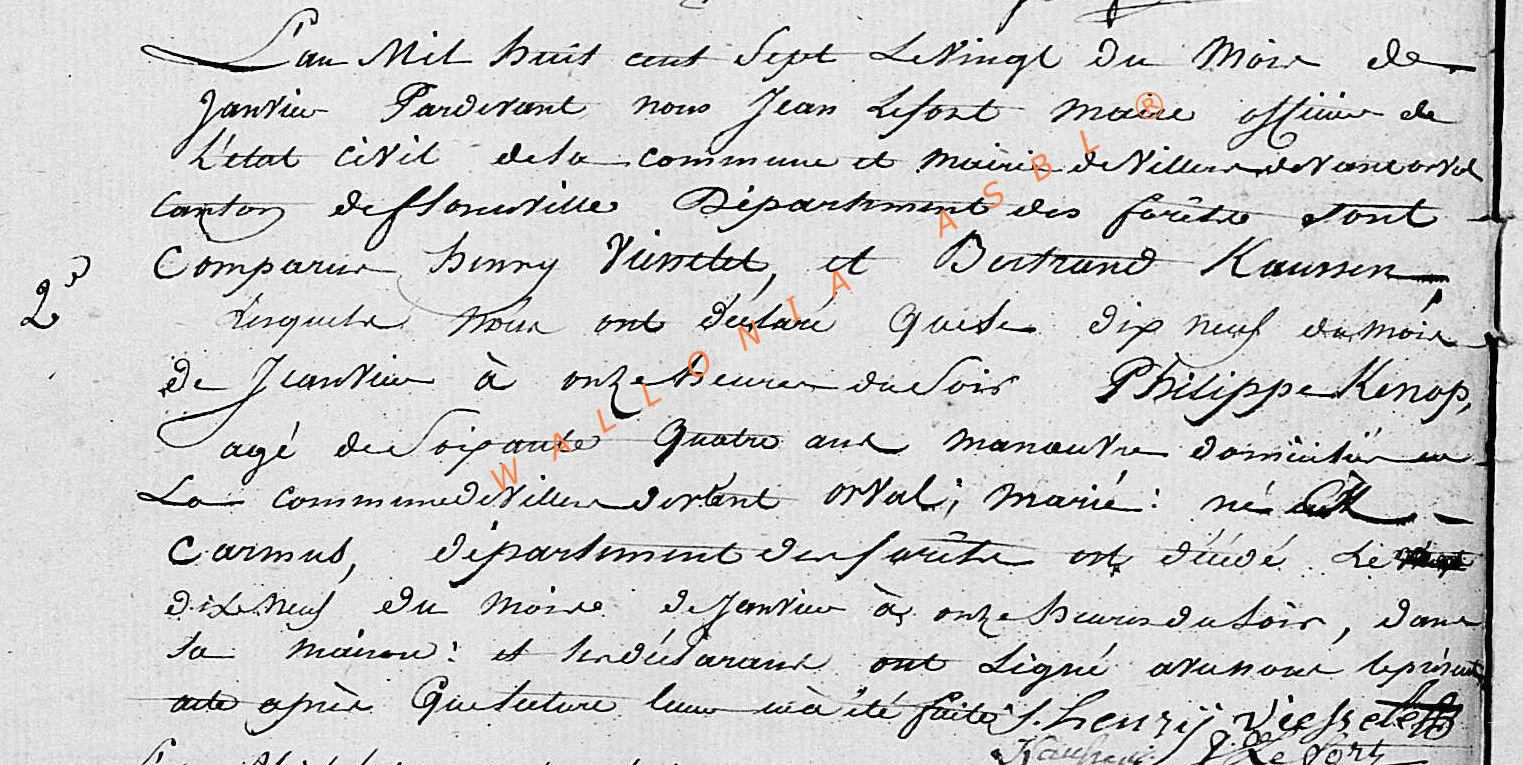 L'an Mil huit cent Sept Le vingt du Mois de
Janvier Pardevant nous Jean Lefort maire officier de
L'etat civil de la commune et mairie de Villers devant orval
Canton de florenville Département des forêts sont
Comparus henry Viesselet, et Bertrand Kaussen,
2e
Lesquels nous ont déclaré que le dix neuf du mois
de Jeanvier à onze heures du Soir Philippe Kenop,
agé de Soixante Quatre ans manœuvre domicilié en
La commune de Villers devant orval; marié: né
Carmus, département des forêts est décédé Le
dixe neuf du moise de Janvier à onze heures du Soir, dans
sa maison: et les déclarans ont signé avec nous le présent
acte après que lecture leur en à été faite. henrÿ Viesselet
Kaussen J. Lefort
WALLONIA ASBL ®